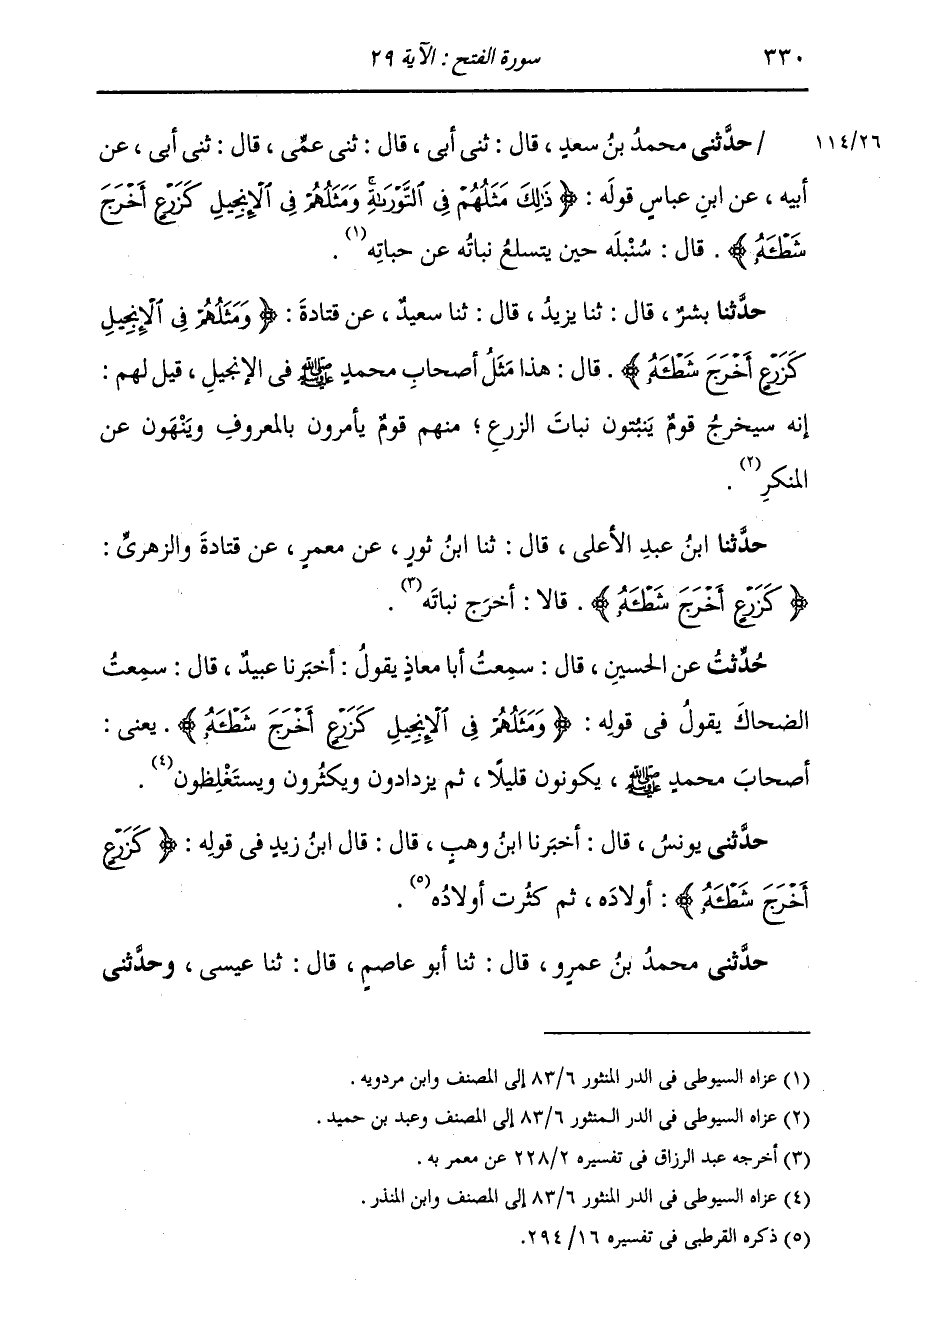 ٣٣٠ سورة الفتح : الآية ٢٩
١١٤/٢٦ / حدَّثنى محمدُ بنُ سعدٍ ، قال : ثنى أبى ، قال : ثنى عمِّى ، قال : ثنى أبى ، عن
أبيه ، عن ابنِ عباسٍ قولَه : ﴿ ذَٰلِكَ مَثَلُهُمْ فِى ٱلتَّوْرَىٰةِ ۚ وَمَثَلُهُمْ فِى ٱلْإِنجِيلِ كَزَرْعٍ أَخْرَجَ
شَطْـَٔهُۥ ﴾ . قال : سُنْبلَه حين يتسلعُ نباتُه عن حباتِه(١) .
حدَّثنا بشرٌ ، قال : ثنا يزيدُ ، قال : ثنا سعيدٌ ، عن قتادةَ : ﴿ وَمَثَلُهُمْ فِى ٱلْإِنجِيلِ
كَزَرْعٍ أَخْرَجَ شَطْـَٔهُۥ ﴾ . قال : هذا مَثَلُ أصحابِ محمدٍ ﷺ فى الإنجيلِ ، قيل لهم :
إنه سيخرجُ قومٌ يَنبُتون نباتَ الزرعِ ؛ منهم قومٌ يأمرون بالمعروفِ ويَنْهَون عن
المنكرِ(٢) .
حدَّثنا ابنُ عبدِ الأعلى ، قال : ثنا ابنُ ثورٍ ، عن معمرٍ ، عن قتادةَ والزهرىِّ :
﴿ كَزَرْعٍ أَخْرَجَ شَطْـَٔهُۥ ﴾ . قالا : أخرَج نباتَه(٣) .
حُدِّثتُ عن الحسينِ ، قال : سمِعتُ أبا معاذٍ يقولُ : أخبَرنا عبيدٌ ، قال : سمِعتُ
الضحاكَ يقولُ فى قولِه : ﴿ وَمَثَلُهُمْ فِى ٱلْإِنجِيلِ كَزَرْعٍ أَخْرَجَ شَطْـَٔهُۥ ﴾ . يعنى :
أصحابَ محمدٍ ﷺ ، يكونون قليلًا ، ثم يزدادون ويكثُرون ويستَغْلِظون(٤) .
حدَّثنى يونسُ ، قال : أخبَرنا ابنُ وهبٍ ، قال : قال ابنُ زيدٍ فى قولِه : ﴿ كَزَرْعٍ
أَخْرَجَ شَطْـَٔهُۥ ﴾ : أولادَه ، ثم كثُرت أولادُه(٥) .
حدَّثنى محمدُ بنُ عمرٍو ، قال : ثنا أبو عاصمٍ ، قال : ثنا عيسى ، وحدَّثنى
(١) عزاه السيوطى فى الدر المنثور ٨٣/٦ إلى المصنف وابن مردويه .
(٢) عزاه السيوطى فى الدر المنثور ٨٣/٦ إلى المصنف وعبد بن حميد .
(٣) أخرجه عبد الرزاق فى تفسيره ٢٢٨/٢ عن معمر به .
(٤) عزاه السيوطى فى الدر المنثور ٨٣/٦ إلى المصنف وابن المنذر .
(٥) ذكره القرطبى فى تفسيره ٢٩٤/١٦.